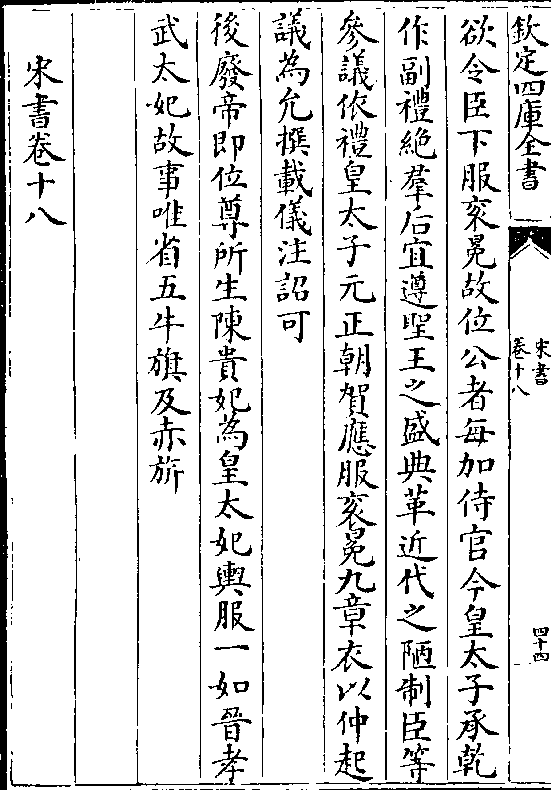 欽定四庫全書
宋書
卷十八
四十四
欲令臣下服衮冕故位公者每加侍官今皇太子承乾
作副禮絶羣后宜遵聖王之盛典革近代之陋制臣等
參議依禮皇太子元正朝賀應服衮冕九章衣以仲起
議為允撰載儀注詔可
後廢帝即位尊所生陳貴妃為皇太妃輿服一如晉孝
武太妃故事唯省五牛旗及赤旂
宋書卷十八